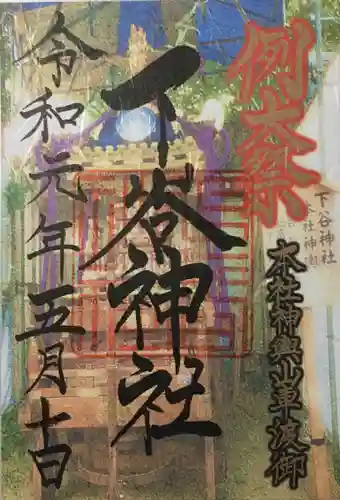 例大祭
本社神輿渡御
下谷神社
本社神輿
下谷神社
令和元年五月十日